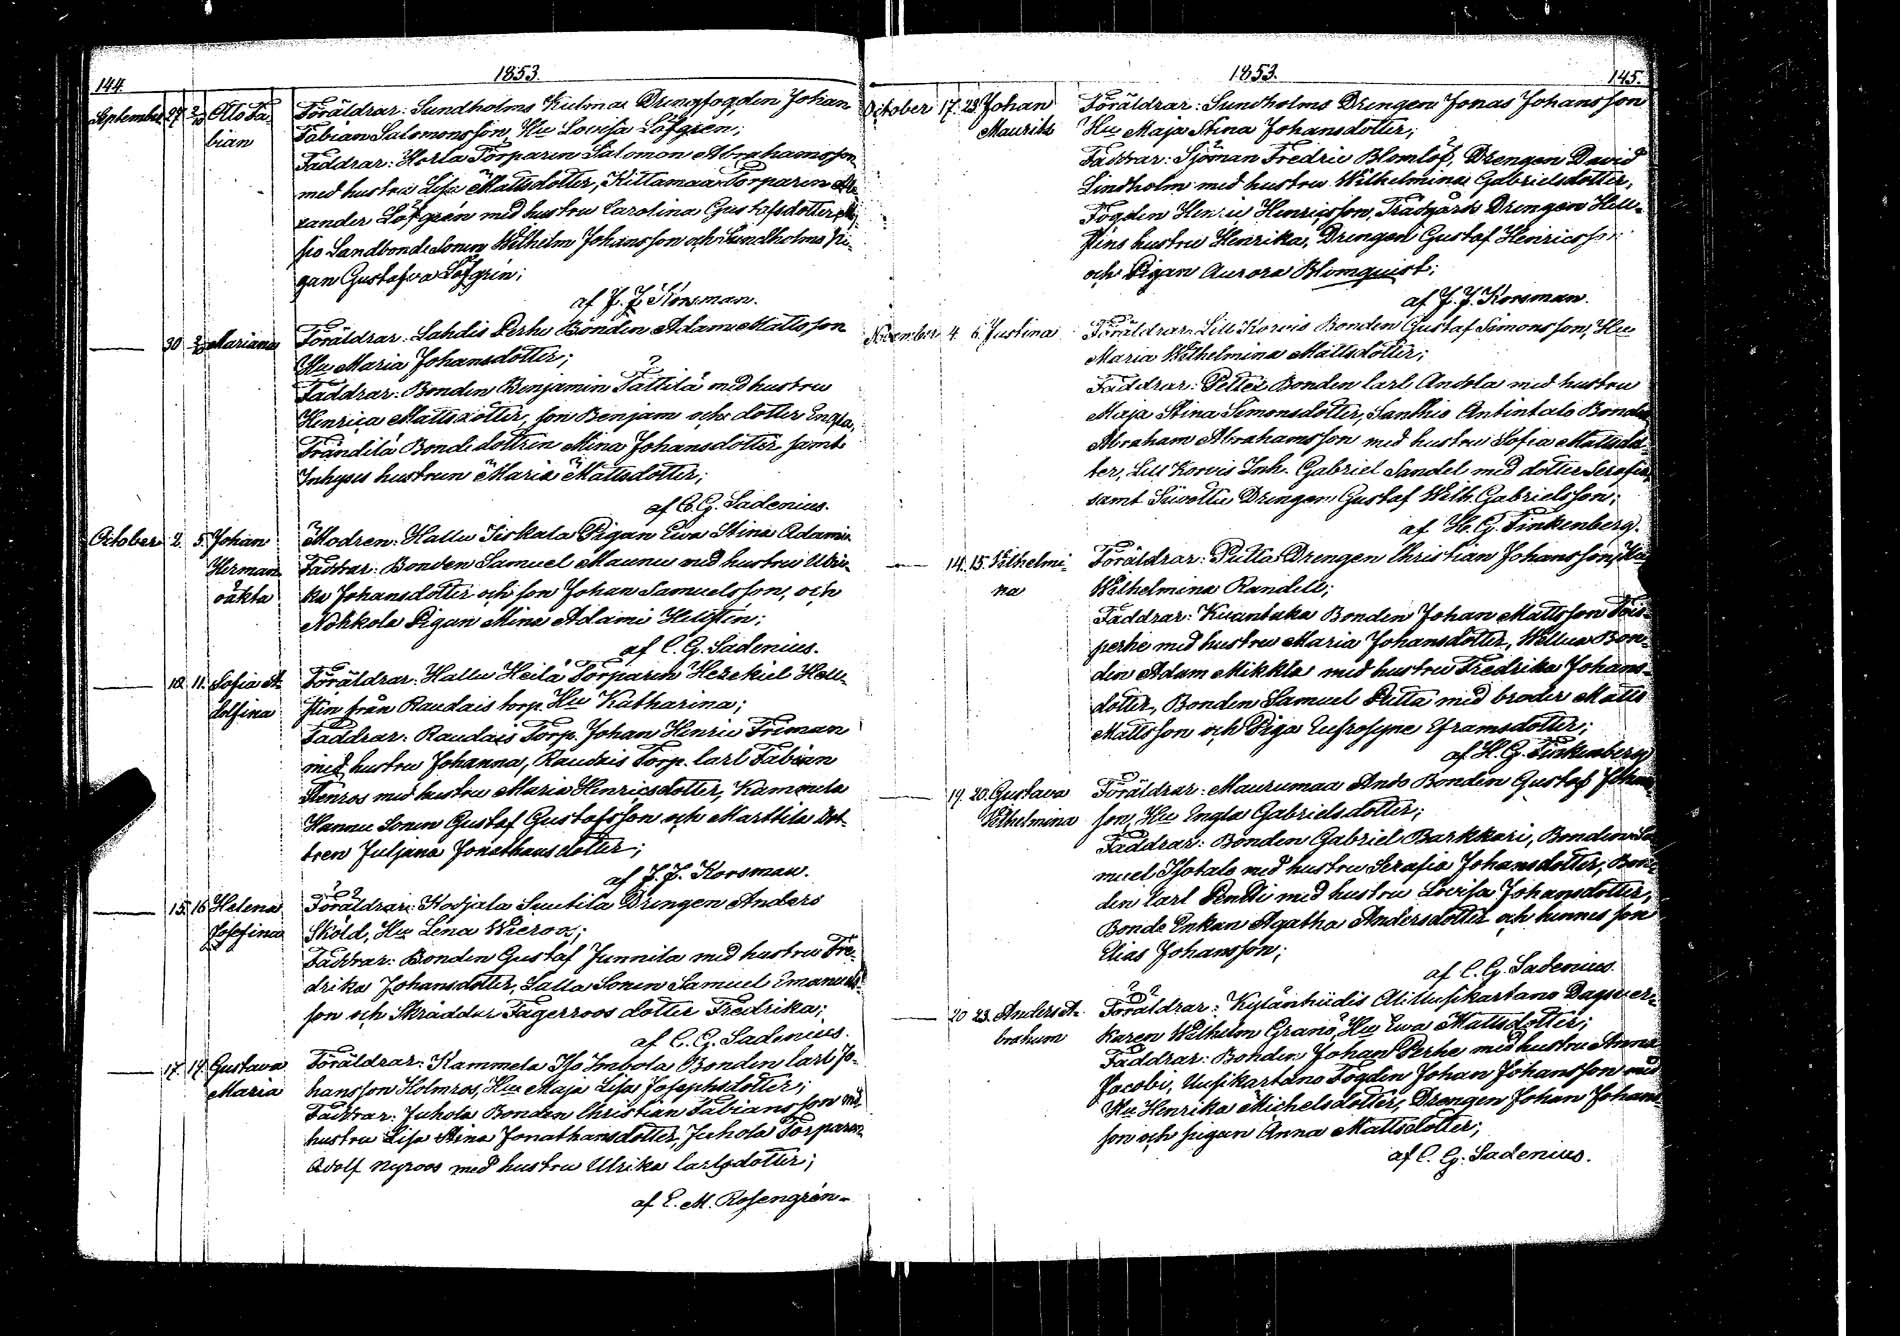 144. 1853.
September 27. 2/10 Otto Fa- Föräldrar: Sundholms Kulmas Drengfogden Johan
bian Fabian Salomonsson, Hu Lovisa Löfgren;
Faddrar: Horla Torparen Salomon Abrahamsson
med hustru Lisa Mattsdotter, Kittamaa Torparen Ale-
xander Löfgrén med hustru Carolina Gustafsdotter,
Landbonde Sonen Wilhelm Johansson och Sundholms Pi-
gan Gustafva Löfgrén;
af J. J. Korsman.
30 2/10 Mariana Föräldrar: Lahdis Perhe Bonden Adam Mattsson
Hu Maria Johansdotter;
Faddrar: Bonden Benjamin Tattila med hustru
Henrica Mattsdotter, son Benjam och dotter Engla,
Frändilä Bondedottren Mina Johansdotter samt
Inhyses hustrun Maria Mattsdotter;
af C. G. Sadenius.
October 2. 5. Johan Modren: Hallu Iiskala Pigan Ewa Stina Adami
Herman Faddrar: Bonden Samuel Maunu med hustru Ulri-
oäkta ka Johansdotter och son Johan Samuelsson, och
Nohkola Pigan Mina Adami Hellstén;
af C. G. Sadenius.
10. 11. Sofia A- Föräldrar: Hallu Heilä Torparen Hezekiel Hell-
dolfina stén från Raudais torp. Hu Katharina;
Faddrar: Raudais Torp. Johan Henric Friman
med hustru Johanna, Raudais Torp. Carl Fabian
Stenros med hustru Maria Henricsdotter, Kammela
Hannu Sonen Gustaf Gustafsson och Marttila Dot-
tren Juliana Jonathansdotter;
af J. J. Korsman.
15. 16 Helena Föräldrar: Kosjala Suutila Drengen Anders
Josefina Sköld, Hu Lena Wierox;
Faddrar: Bonden Gustaf Junnila med hustru Fre-
drika Johansdotter, Lalla Sonen Samuel Emanuels-
son och Skräddar Fagerroos dotter Fredrika;
af C. G. Sadenius.
17. 19. Gustava Föräldrar: Kammela Iso Imbola Bonden Carl Jo-
Maria hansson Holmros, Hu Maja Lisa Josephsdotter;
Faddrar: Juhola Bonden Christian Fabiansson med
hustru Lisa Stina Jonathansdotter, Juhola Torparen
Adolf Nyroos med hustru Ulrika Carlsdotter;
af E. M. Rosengrén.
1853. 145.
October 17. 23. Johan Föräldrar: Sundholms Drengen Jonas Johansson
Maurits Hu Maja Stina Johansdotter;
Faddrar: Sjöman Fredric Blomlöf, Drengen David
Lindholm med hustru Wilhelmina Gabrielsdotter,
Fogden Henric Henricsson, Trädgårds Drengen Hell-
sténs hustru Henrika, Drengen Gustaf Henricsson
och Pigan Aurora Blomquist;
af J. J. Korsman.
November 4. 6. Justina Föräldrar: Lill Korvis Bonden Gustaf Simonsson, Hu
Maria Wilhelmina Mattsdotter;
Faddrar: Bonden Carl Andola med hustru
Maja Stina Simonsdotter, Santtio Antintalo Bonden
Abraham Abrahamsson med hustru Sofia Mattsdot-
ter, Lill Korvis Inh. Gabriel Sandel med dotter Serafia,
samt Drengen Gustaf Wilh. Gabrielsson;
af H. G. Finkenberg.
14. 15. Wilhelmi- Föräldrar: Putta Drengen Christian Johansson, Hu
na Wilhelmina Randell;
Faddrar: Kuanbaka Bonden Johan Mattsson
perhe med hustru Maria Johansdotter, Wellua Bon-
den Adam Mikkla med hustru Fredrika Johans-
dotter, Bonden Samuel Putta med broder Matts
Mattsson och Piga Eufrosyne Eframsdotter;
af H. G. Finkenberg
19. 20. Gustava Föräldrar: Maurumaa Ando Bonden Gustaf Johans-
Wilhelmina son, Hu Engla Gabrielsdotter;
Faddrar: Bonden Gabriel Barkkari, Bonden Sa-
muel Isotalo med hustru Serafia Johansdotter, Bon-
den Carl Penti med hustru Lovisa Johansdotter,
Bonde Enkan Agatha Andersdotter och hennes son
Elias Johansson;
af C. G. Sadenius.
20 23. Anders A- Föräldrar: Kylänhiidis Ali Uusikartano Dagsver-
braham karen Wilhelm Granö, Hu Ewa Mattsdotter;
Faddrar: Bonden Johan Perhe med hustru Anna
Jacobi, Uusikartano Fogden Johan Johansson med
Hu Henrika Michelsdotter, Drengen Johan Johans-
son och pigan Anna Mattsdotter;
af C. G. Sadenius.